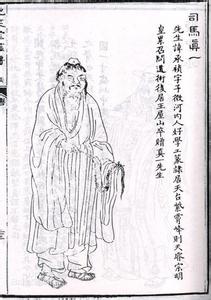 司馬真一
先生諱承禎字子微河內人好學工篆隸居天台紫霄峰則天睿宗明
皇累召問道術後居王屋山卒贈真一先生